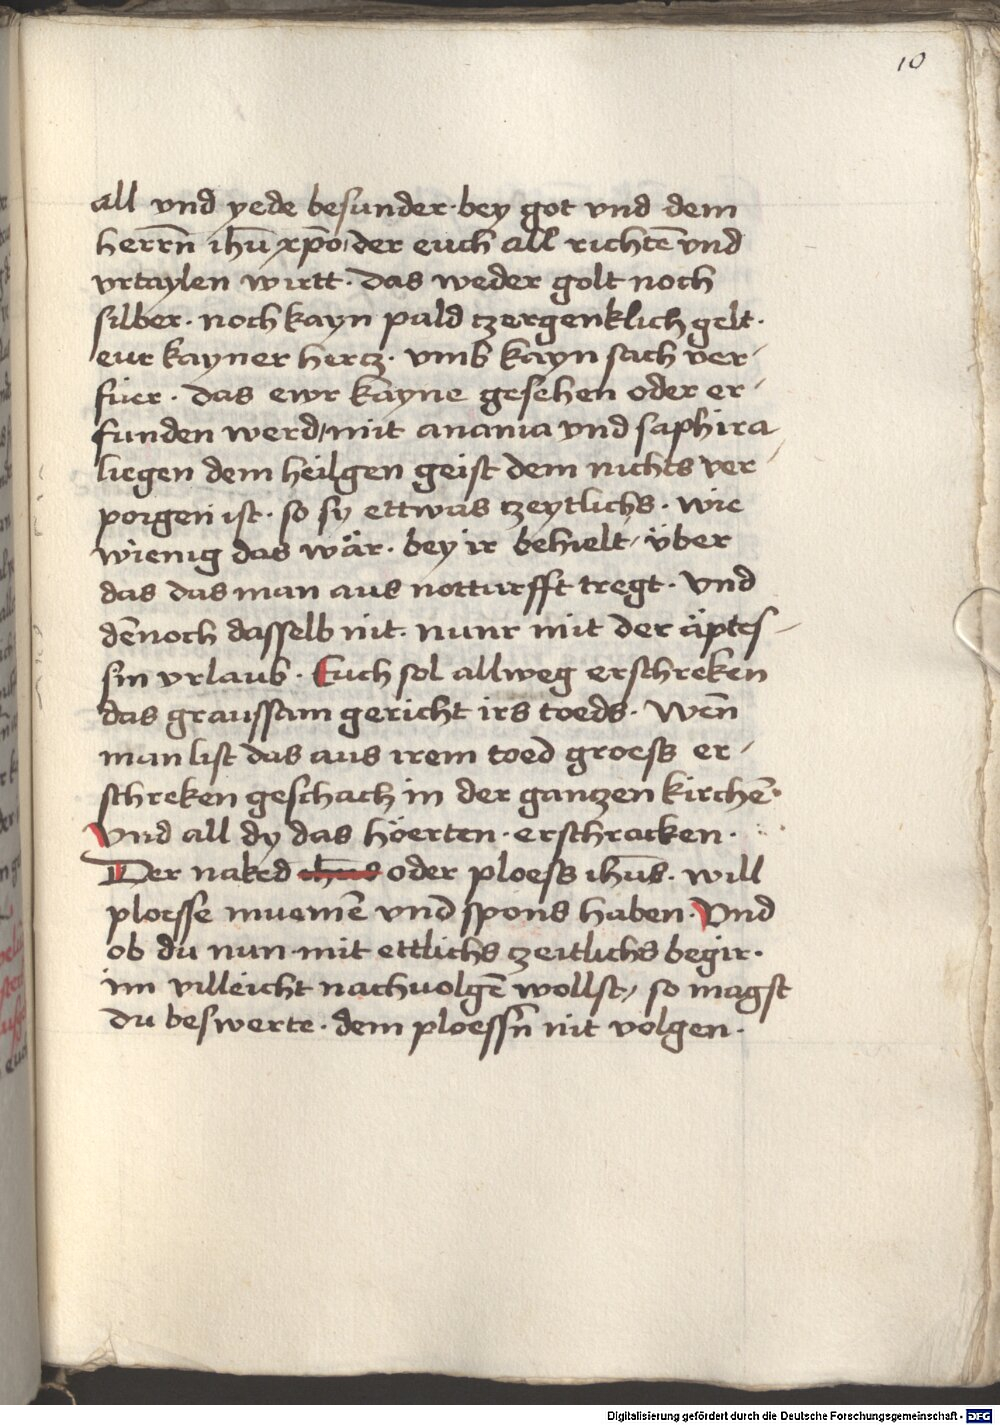 10
all vnd yede besunder · bey got vnd dem
herrn̄ ihū xp̄o / der euch all richtē vnd
vrtaylen wirtt · das weder golt noch
silber · noch kayn pald tzergenklich gelt ·
eur kayner hertz · vmb kayn sach ver-
füer · das ewr kayne gesehen oder er-
funden werd / mit anania vnd saphira
liegen dem heilgen geist dem nichts ver-
porgen ist · so sy ettwas tzeytlichs · wie
wienig das wär · bey ir behielt / über
das das man aus notturfft tregt · vnd
dēnoch dasselb nit · nunr mit der äptes-
sin vrlaub · Euch sol allweg erschreken
das graussam gericht irs toeds · wēn
man list das aus irem toed groess er-
schreken geschach in der gantzen kirchē ·
Vnd all dy das höerten · erschracken ·
Der naked ihūs oder ploess ihūs · will
ploesse muemē vnd spons haben · Vnd
ob du nun mit ettlichs zeitlichs begir ·
im villeicht nachuolgē wollst / so magst
du beswerte · dem ploessn̄ nit volgen ·
Digitalisierung gefördert durch die Deutsche Forschungsgemeinschaft - DFG